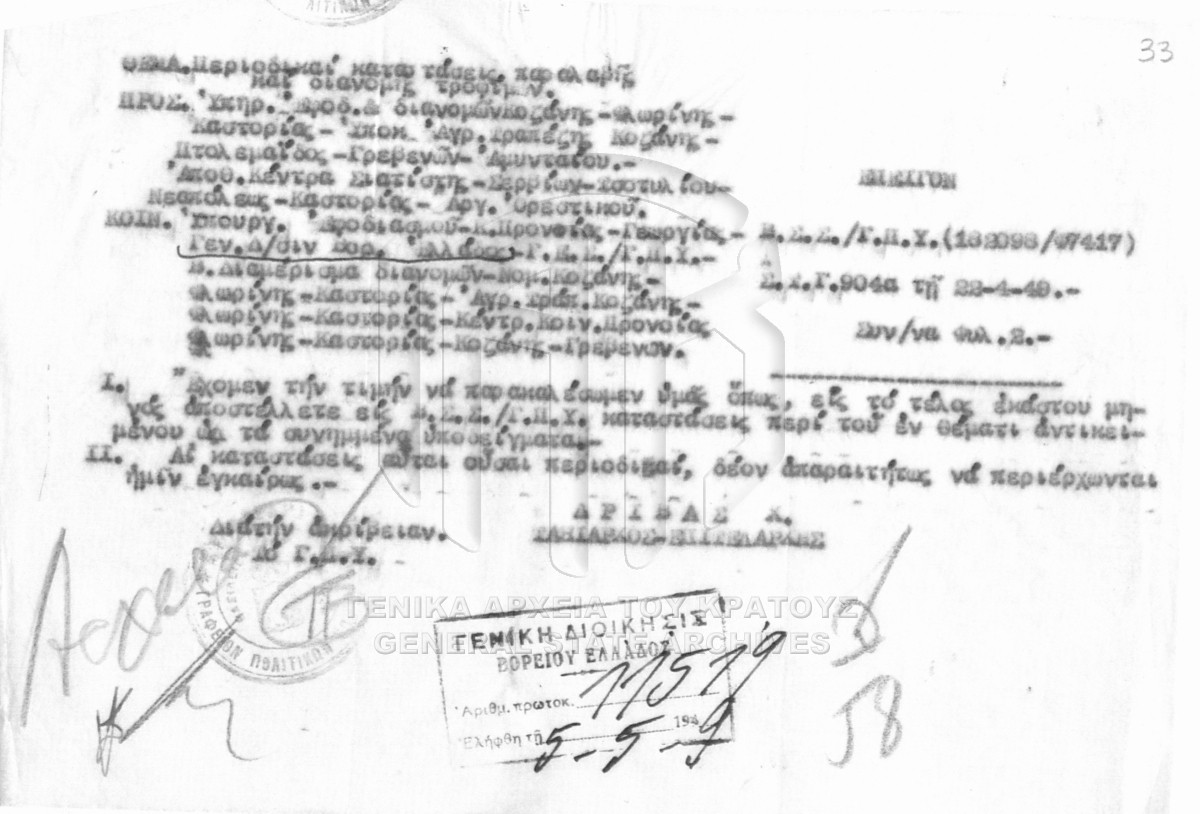 33
ΘΕΜΑ. Περιοδικαί καταστάσεις παραλαβῆς
καί διανομῆς τροφίμων.
ΠΡΟΣ. Ὑπηρ. Ἐφοδ. & διανομῶν Κοζάνης-Φλωρίνης-
Καστοριᾶς- Ὑποκ. Ἀγρ. Τραπέζης Κοζάνης-
Πτολεμαΐδος-Γρεβενῶν- Ἀμυνταίου.-
Ἀποθ. Κέντρα Σιατίστης-Σερβίων-Τσοτυλίου-
Νεαπόλεως-Καστορίας- Ἀργ. Ὀρεστικοῦ.
ΚΟΙΝ. Ὑπουργ. Ἐφοδιασμοῦ-Κ.Προνοίας-Γεωργίας-
Γεν. Δ/σιν Βορ. Ἑλλάδος-Γ.Ε.Σ./Γ.Π.Χ.-
Β. Διαμέρισμα διανομῶν-Νομ. Κοζάνης-
Φλωρίνης-Καστορίας- Ἀγρ. Τραπ. Κοζάνης-
Φλωρίνης-Καστορίας-Κέντρ. Κοιν. Προνοίας
Φλωρίνης-Καστορίας-Κοζάνης-Γρεβενῶν.
ΕΠΕΙΓΟΝ
Β.Σ.Σ./Γ.Π.Χ. (162098/Φ7417)
Σ.Τ.Γ. 904α τῇ 22-4-49.-
Συν/να Φυλ. 2.-
I. Ἔχομεν τήν τιμήν νά παρακαλέσωμεν ὑμᾶς ὅπως, εἰς τό τέλος ἑκάστου μη-
νός ἀποστέλλετε εἰς Β.Σ.Σ./Γ.Π.Χ. καταστάσεις περί τοῦ ἐν θέματι ἀντικει-
μένου ὡς τά συνημμένα ὑποδείγματα.-
II. Αἱ καταστάσεις αὗται οὖσαι περιοδικαί, δέον ἀπαραιτήτως νά περιέρχωνται
ἡμῖν ἐγκαίρως.-
Διά τήν ἀκρίβειαν.
Γ.Π.Χ.
ΔΡΙΒΑΣ Χ.
ΤΑΞΙΑΡΧΟΣ-ΕΠΙΤΕΛΑΡΧΗΣ
ΓΡΑΦΕΙΟΝ ΠΟΛΙΤΙΚΩΝ
ΓΕΝΙΚΑ ΑΡΧΕΙΑ ΤΟΥ ΚΡΑΤΟΥΣ
GENERAL STATE ARCHIVES
ΓΕΝΙΚΗ ΔΙΟΙΚΗΣΙΣ
ΒΟΡΕΙΟΥ ΕΛΛΑΔΟΣ
Ἀριθμ. πρωτοκ. 11519
Ἐλήφθη τῇ 5-5-9 194
58